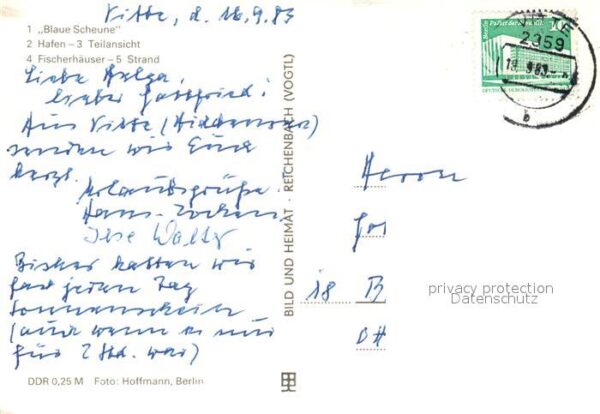 Vitte, d. 16.9.83
1 „Blaue Scheune"
2 Hafen – 3 Teilansicht
4 Fischerhäuser – 5 Strand
Liebe Helga,
lieber Gottfried!
Aus Vitte (Hiddensee)
senden wir Euch
herzl. Urlaubsgrüße.
Hans-Jochen,
Ilse Walty
Bisher hatten wir
fast jeden Tag
Sonnenschein
(auch wenn es nur
für 2 Std. war)
DDR 0,25 M Foto: Hoffmann, Berlin
BILD UND HEIMAT · REICHENBACH (VOGTL)
10
2359
b
Herrn
18
privacy protection
Datenschutz